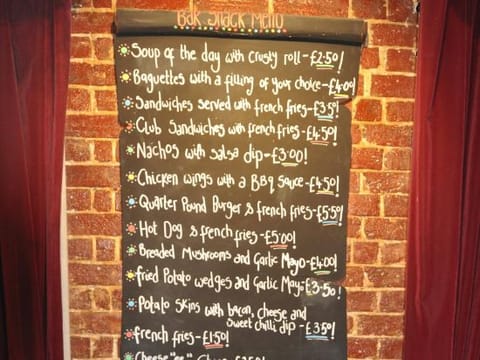 Bar Snack Menu
Soup of the day with crusty roll - £2.50!
Baguettes with a filling of your choice - £4.00!
Sandwiches served with french fries - £3.50!
Club Sandwiches with french fries - £4.50!
Nachos with salsa dip - £3.00!
Chicken wings with a BBQ sauce - £4.50!
Quarter Pound Burger & french fries - £5.50!
Hot Dog & french fries - £5.00!
Breaded Mushrooms and Garlic Mayo - £4.00!
fried Potato wedges and Garlic Mayo - £3.50!
Potato Skins with bacon, cheese and
sweet chilli dip - £3.50!
french fries - £1.50!
Cheese